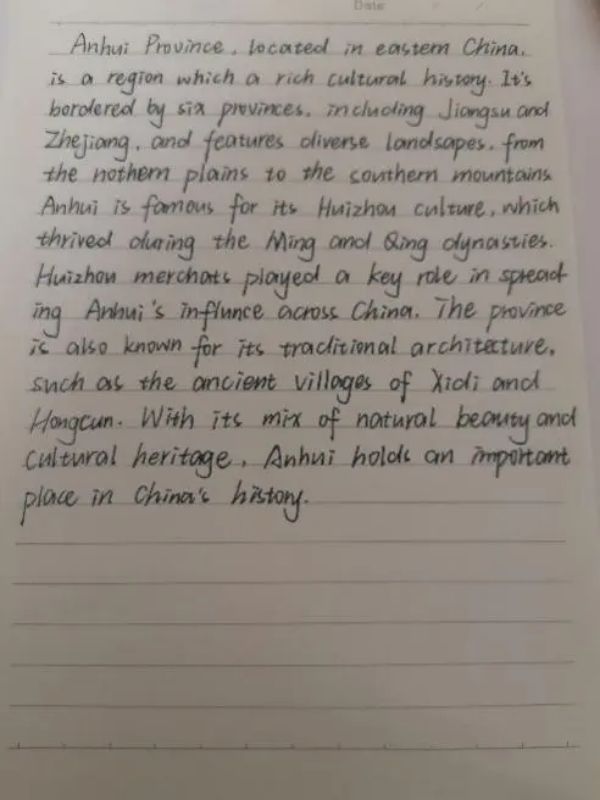 Date
Anhui Province, located in eastern China,
is a region which a rich cultural history. It's
bordered by six provinces, including Jiangsu and
Zhejiang, and features diverse landscapes, from
the nothern plains to the southern mountains
Anhui is famous for its Huizhou culture, which
thrived during the Ming and Qing dynasties.
Huizhou merchats played a key role in spread-
ing Anhui's influnce across China. The province
is also known for its traditional architecture,
such as the ancient villages of Xidi and
Hongcun. With its mix of natural beauty and
cultural heritage, Anhui holds an important
place in China's history.